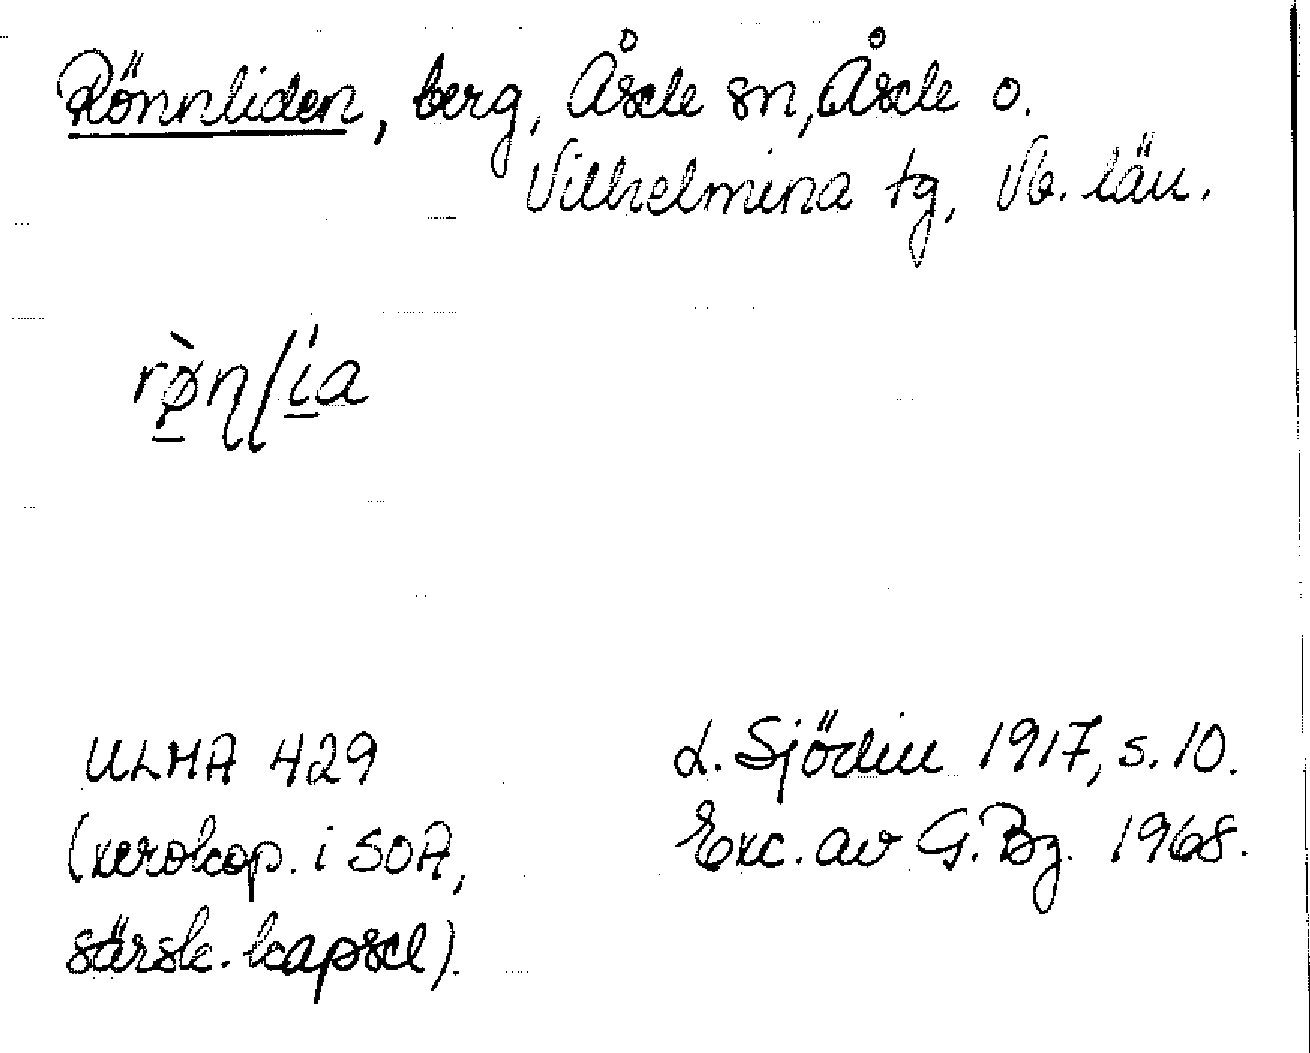 Rönnliden, berg, Åsele sn, Åsele o.
Vilhelmina tg, Vb. län.
ULMA 429
(xerokop. i SOA,
särsk. kapsel).
L. Sjödin 1917, s. 10.
Exc. av G. Bg. 1968.